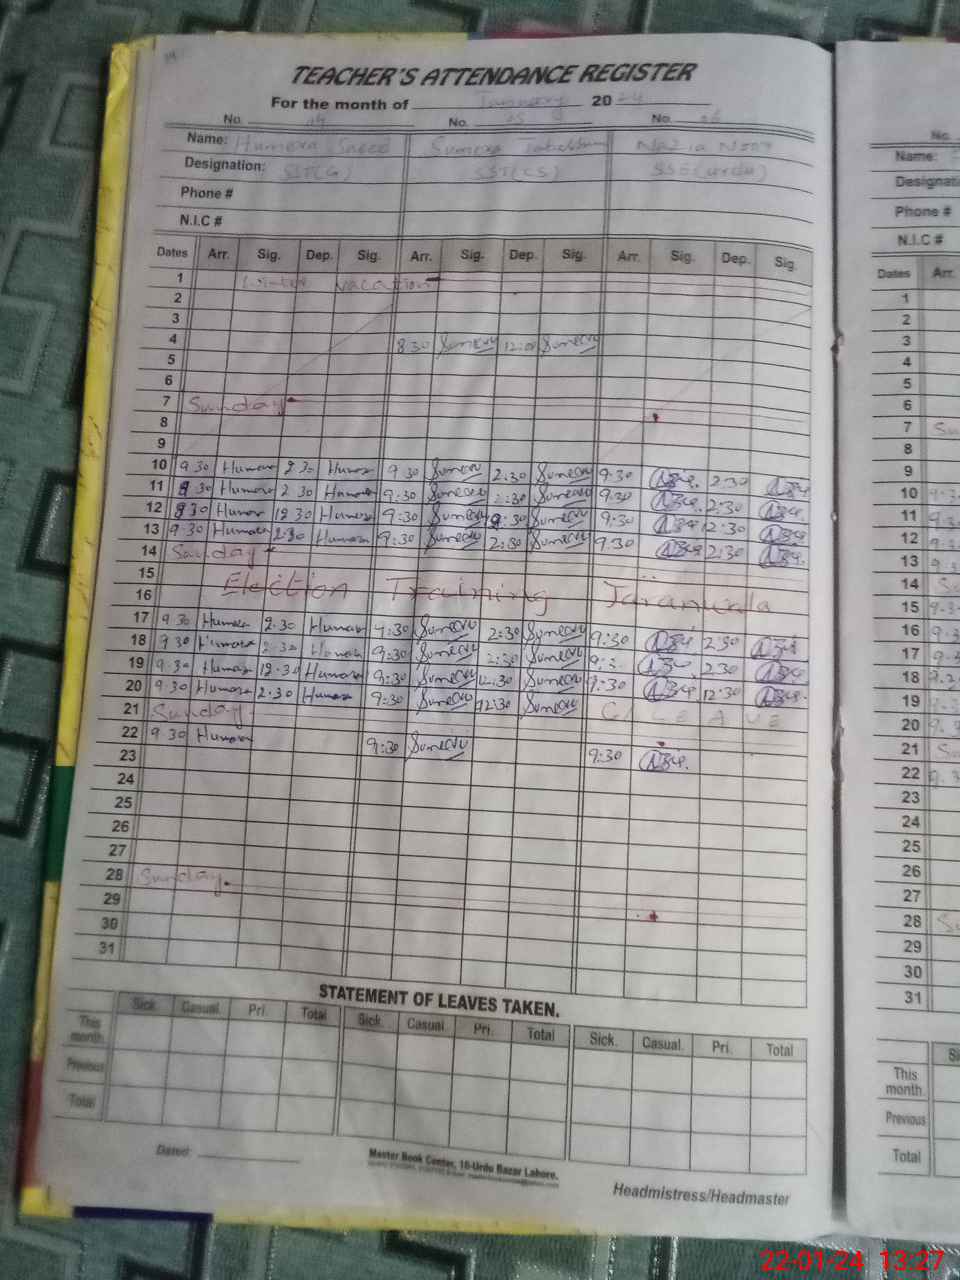 TEACHER'S ATTENDANCE REGISTER
For the month of January 2024
No. 04 No. 05 No. 06
Name: Humera Saeed Sumera Nazia Noor
Designation: SST(G) SST(CS) SSE(urdu)
Phone #
N.I.C #
Dates Arr. Sig. Dep. Sig. Arr. Sig. Dep. Sig. Arr. Sig. Dep. Sig.
1 Winter vacation
2
3
4 8:30 Sumera 12:00 Sumera
5
6
7 Sunday
8
9
10 9:30 Humera 2:30 Humera 9:30 Sumera 2:30 Sumera 9:30 2:30
11 9:30 Humera 2:30 Humera 9:30 Sumera 2:30 Sumera 9:30 2:30
12 9:30 Humera 12:30 Humera 9:30 Sumera Sumera 9:30 12:30
13 9:30 Humera 2:30 Humera 9:30 Sumera 2:30 Sumera 9:30 2:30
14 Sunday
15
16 Election Training Jaranwala
17 9:30 Humera 2:30 Humera 9:30 Sumera 2:30 Sumera 9:30 2:30
18 9:30 Humera 2:30 Humera 9:30 Sumera 2:30 Sumera 9:3 2:30
19 9:30 Humera 12:30 Humera 9:30 Sumera 12:30 Sumera 9:30 12:30
20 9:30 Humera 2:30 Humera 9:30 Sumera 12:30 Sumera C/LEAVE
21 Sunday
22 9:30 Humera 9:30 Sumera 9:30
23
24
25
26
27
28 Sunday
29
30
31
STATEMENT OF LEAVES TAKEN.
Sick. Casual. Pri. Total Sick. Casual. Pri. Total Sick. Casual. Pri. Total
This month
Previous
Total
Dated:
Master Book Center, 10-Urdu Bazar Lahore.
Headmistress/Headmaster
No.
Name:
Designati
Phone #
N.I.C #
Dates Arr.
1
2
3
4
5
6
7 Su
8
9
10 9:3
11 9:3
12 9:3
13 9:3
14 Su
15 9:3
16 9:3
17 9:3
18 9:3
19 9:3
20 9:3
21 Su
22 9:3
23
24
25
26
27
28 Su
29
30
31
Si
This month
Previous
Total
22-01-24 13:27